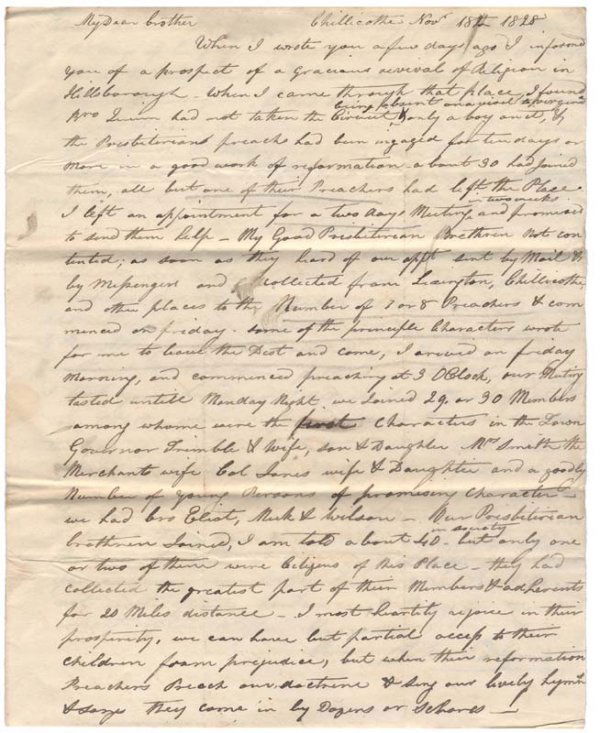 My Dear brother Chillicothe Novr 18th 1828
When I wrote you a few days ago I informd
you of a prospect of a Gracious revival of Religion in
Hillsborough. When I came through that place, I found
being absent on a visit
Bro Quinn had not taken the Circuit & only a boy on it, &
the Presbiterians preachs had been ingaged for ten days or
more in a good work of reformation about 30 had joined
them, all but one of their Preachers had left the Place
in two weeks
I left an appointment for a two days Meeting and promised
to send them help – My Good Presbiterian Brethren not con
tented; as soon as they heard of our appt sent by Mail &
by Messengers and collected from Lexington, Chillicothe
and other places to the Number of 7 or 8 Preachers & com
menced on friday. some of the principle Characters wrote
for me to leave the Dist and come, I arived on friday
Morning, and commenced preaching at 3 OClock, our Meting
lasted untill Monday Night we Joined 29 or 30 Members
among whome were the first Characters in the Town
Governor Trimble & Wife, son & Daughter Mrs Smith the
Merchants wife Col Jones wife & Daughter and a goodly
Number of young Persons of promising Character –
we had brs Eliot, & Wilson – Our Presbiterian
in society
brethren Joined, I am told about 40 – but only one
or two of them were Citizens of this Place – they had
collected the greatest part of their Members & adherents
for 20 Miles distance – I most heartily rejoice in their
prosperity, we can have but partial access to their
Children from prejudice, but when their reformation
Preachers Preach our doctrine & sing our lively hymns
& songs they come in by Dozens or Schores –